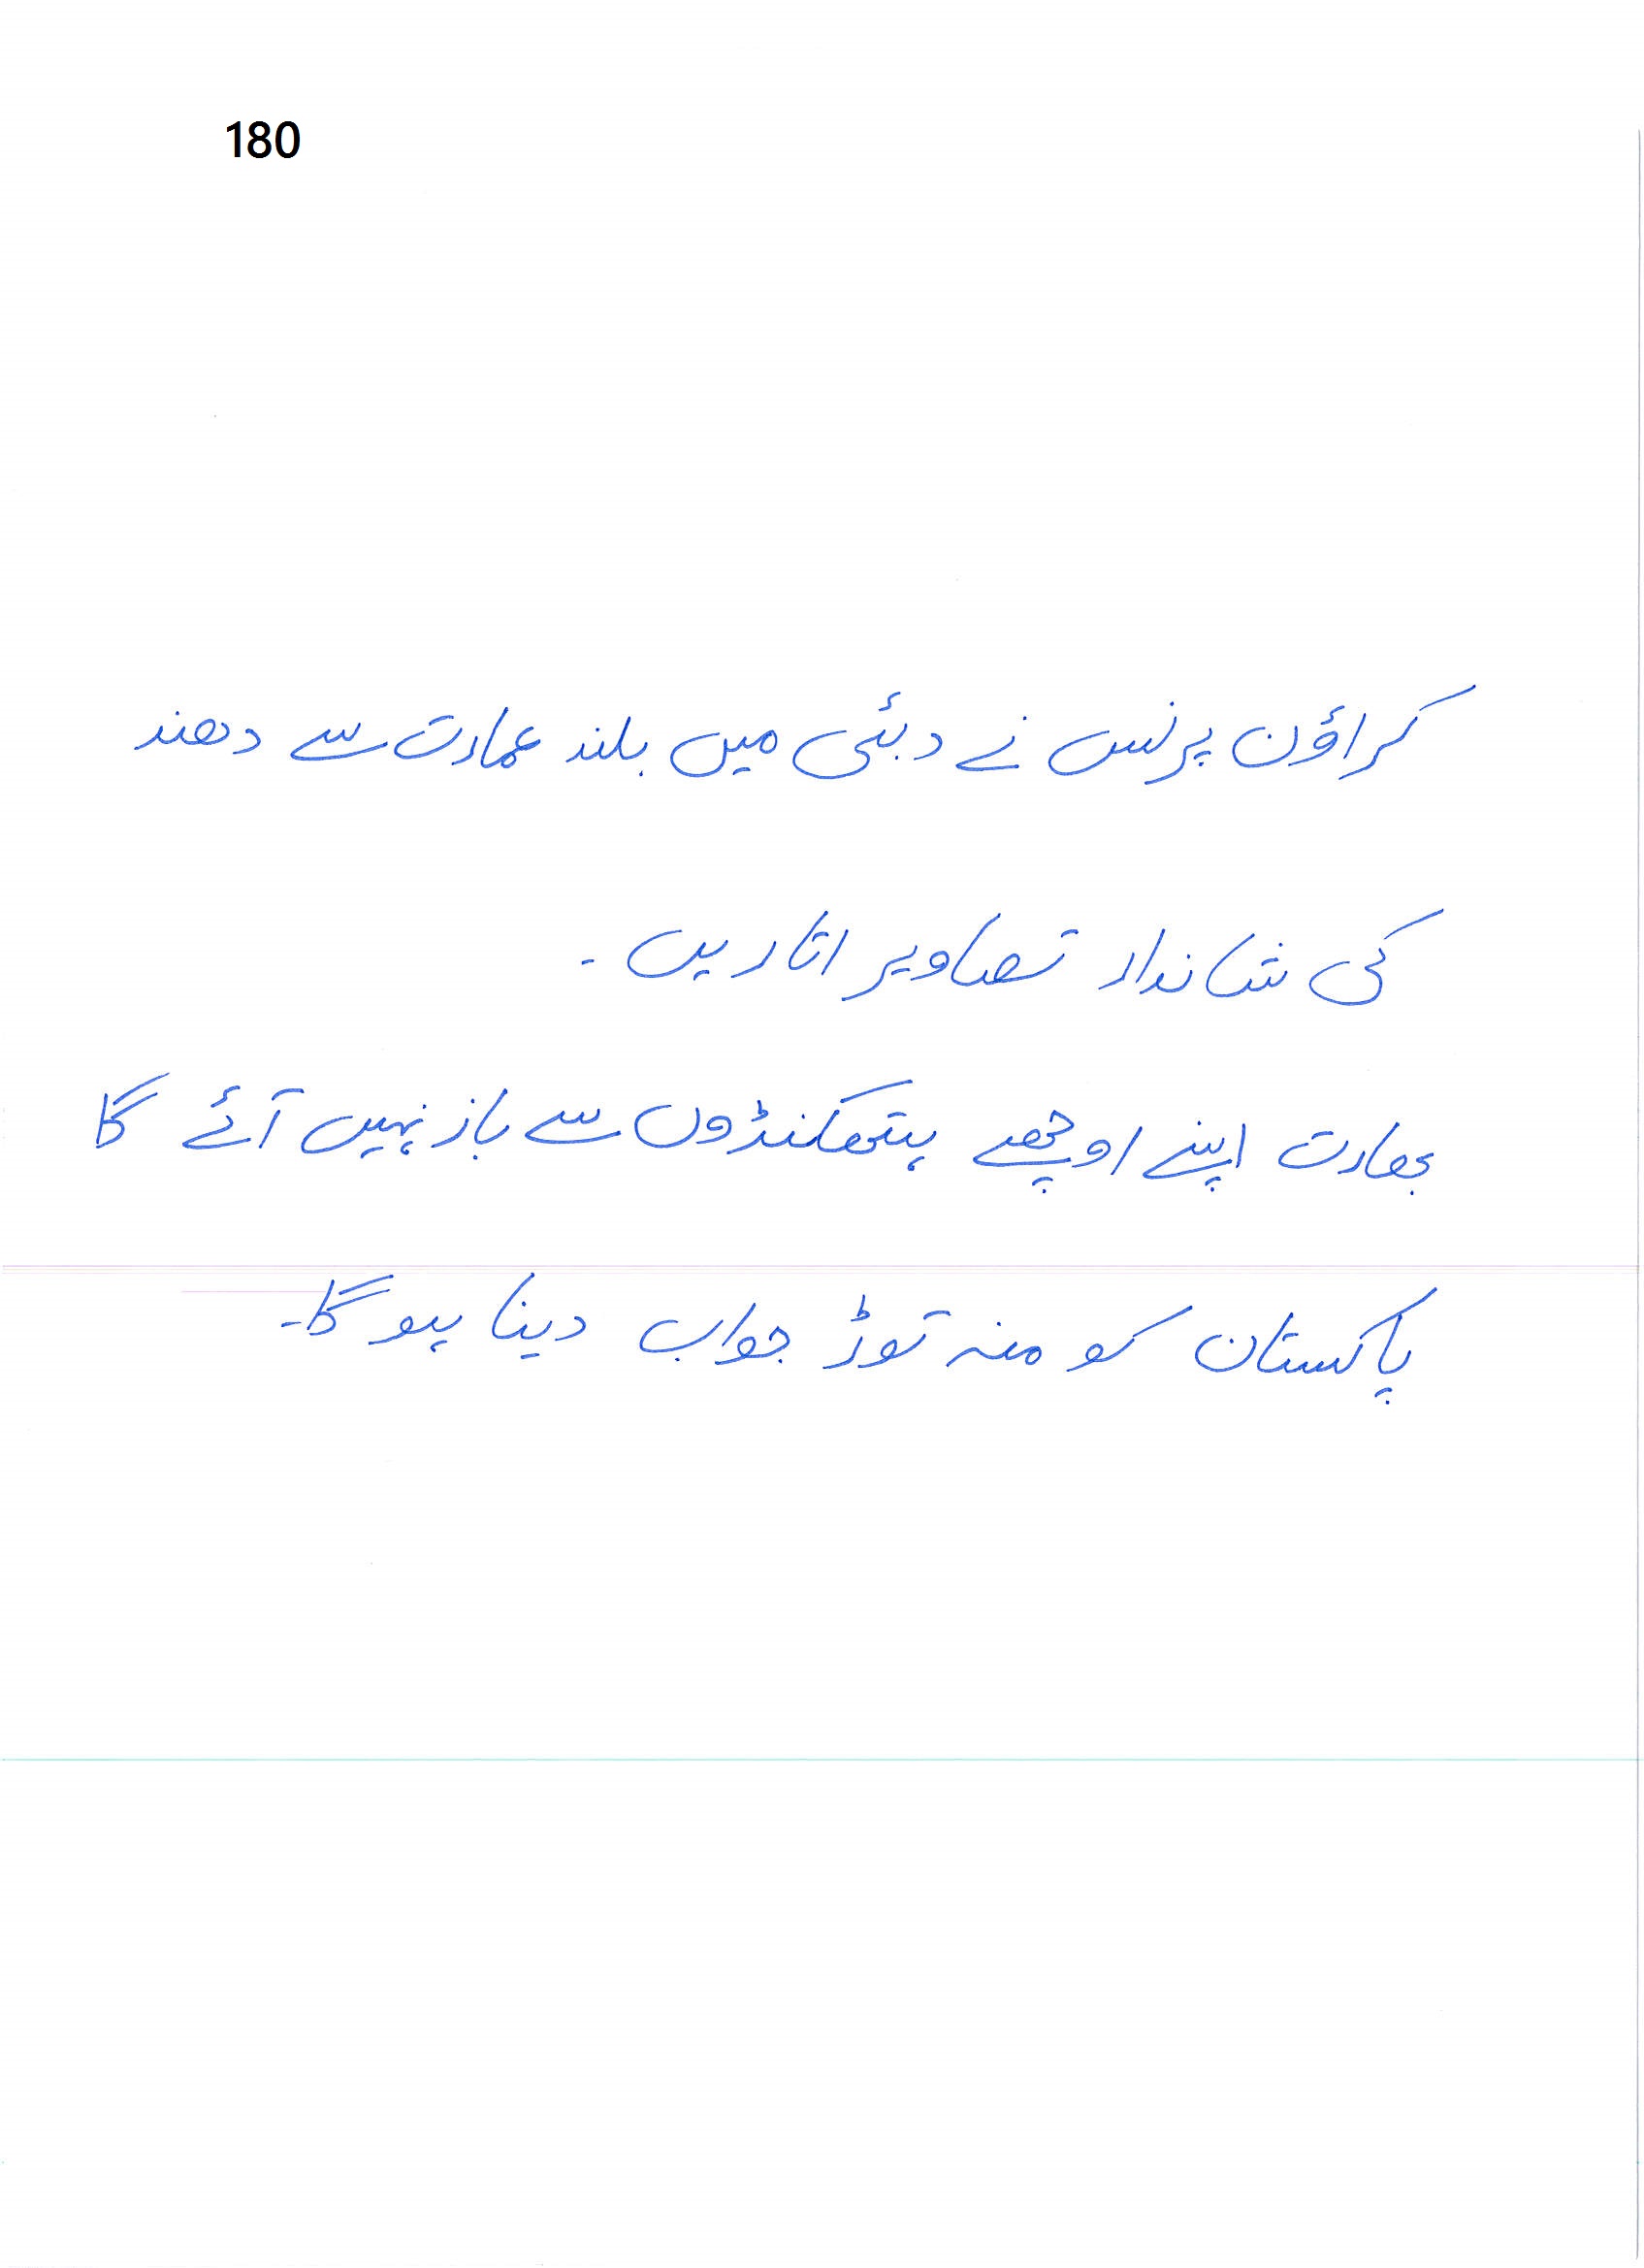 180
کراؤن پرنس نے دبئی میں بلند عمارت سے دھند
کی شاندار تصاویر اتاریں ۔
بھارت اپنے اوچھے ہتھکنڈوں سے باز نہیں آئے گا
پاکستان کو منہ توڑ جواب دینا ہو گا۔